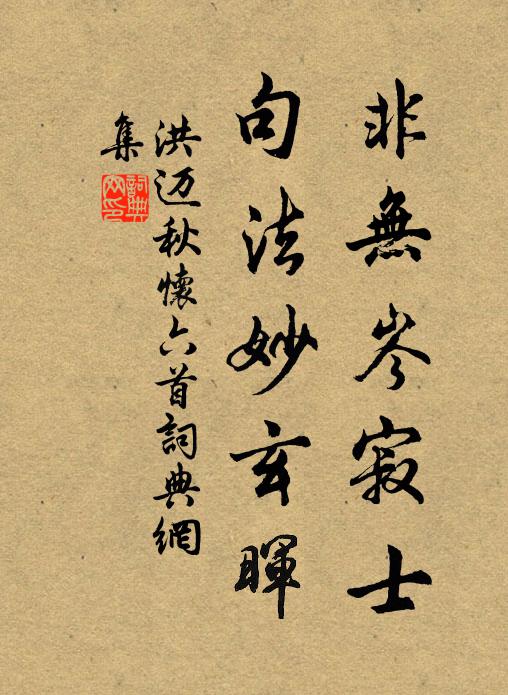 非無岑寂士
句法妙玄暉
洪迈秋懷六首詞典網
集
詞典
网印